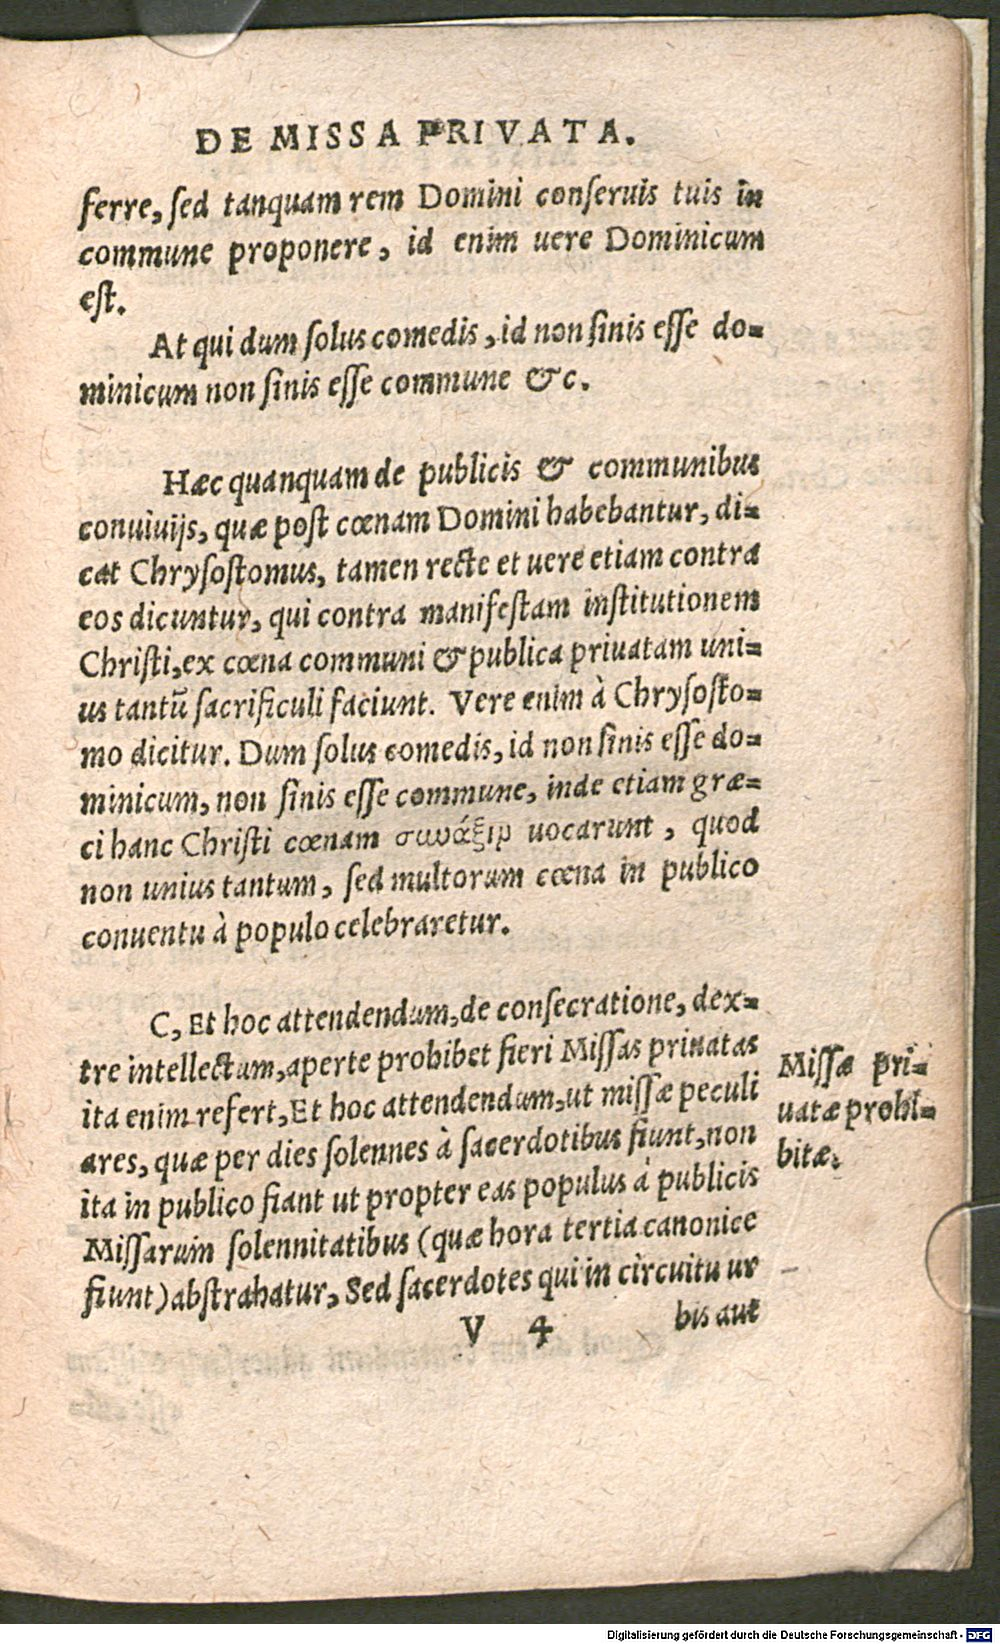 DE MISSA PRIVATA.
ferre, ſed tanquam rem Domini conſeruis tuis in
commune proponere, id enim uere Dominicum
eſt.
At qui dum ſolus comedis, id non ſinis eſſe do-
minicum non ſinis eſſe commune &c.
Hæc quanquam de publicis & communibus
conuiuijs, quæ poſt cœnam Domini habebantur, di-
cat Chryſoſtomus, tamen recte et uere etiam contra
eos dicuntur, qui contra manifeſtam inſtitutionem
Chriſti, ex cœna communi & publica priuatam uni-
us tantũ ſacrificuli faciunt. Vere enim à Chryſoſto-
mo dicitur. Dum ſolus comedis, id non ſinis eſſe do-
minicum, non ſinis eſſe commune, inde etiam græ-
ci hanc Chriſti cœnam συνάξιν uocarunt, quod
non unius tantum, ſed multorum cœna in publico
conuentu à populo celebraretur.
C, Et hoc attendendum, de conſecratione, dex-
tre intellectum, aperte prohibet fieri Miſſas priuatas
ita enim refert, Et hoc attendendum, ut miſſæ peculi
ares, quæ per dies ſolennes à ſacerdotibus fiunt, non
ita in publico fiant ut propter eas populus à publicis
Miſſarum ſolennitatibus (quæ hora tertia canonice
fiunt) abſtrahatur, Sed ſacerdotes qui in circuitu ur
V 4 bis aut
Miſſæ pri-
uatæ prohi-
bitæ.
Digitalisierung gefördert durch die Deutsche Forschungsgemeinschaft - DFG